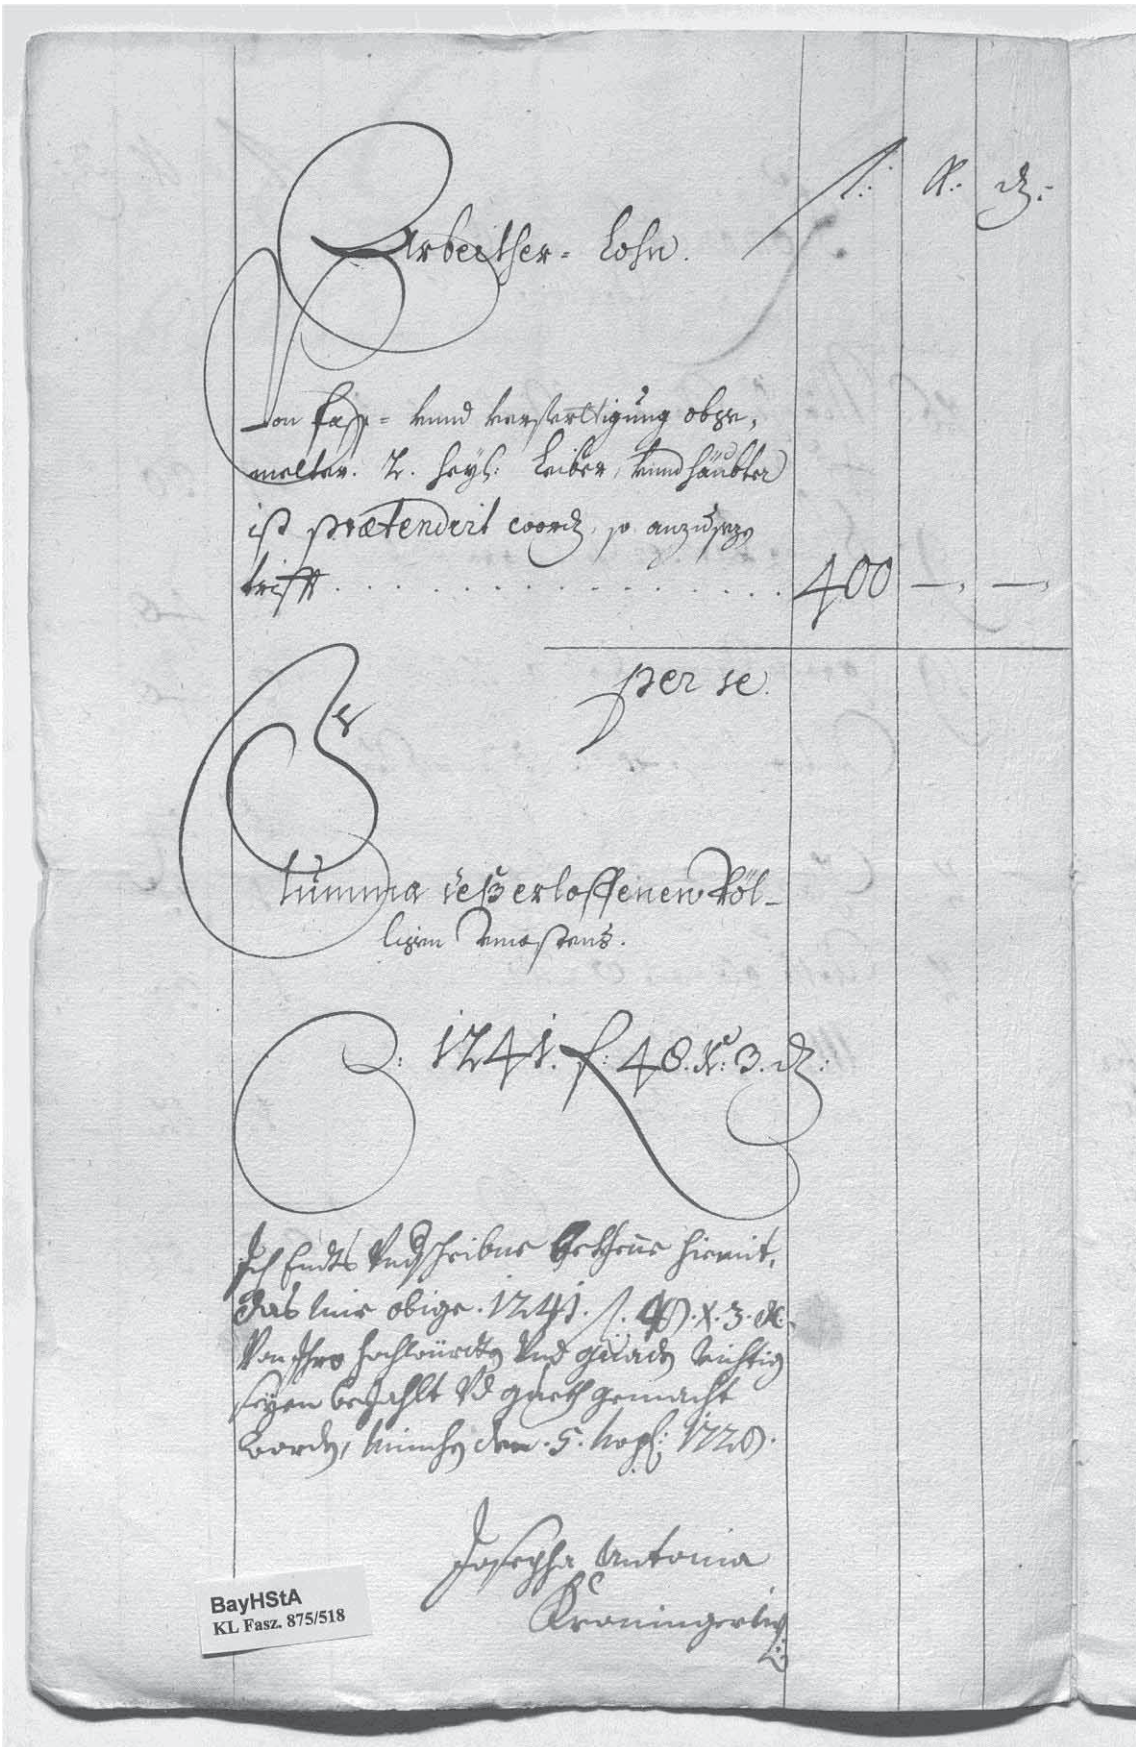 f: kr: dl:
Arbeither= Lohn.
Von Fass= vnnd verferttigung obge,
melter. 2. heyl: Leiber, vnnd häubter
ist prætendirt word, so anzusezen
trifft . . . . . . . . . . . . . . 400 — . — .
per se.
Summa deß erloffenen Völ-
ligen Vncostens.
: 1241. f: 48. kr: 3. dl:
Ich Endts Vndschribne bekhene hiemit,
das mir obige . 1241. f. 48. x. 3. dl.
Von Ihro hochwürdten Vnd gnaden richtig
seyen bezahlt Vd gueth gemacht
worden, München den . 5. 1728.
Josepha Antonia
Kroningerin
BayHStA
KL Fasz. 875/518